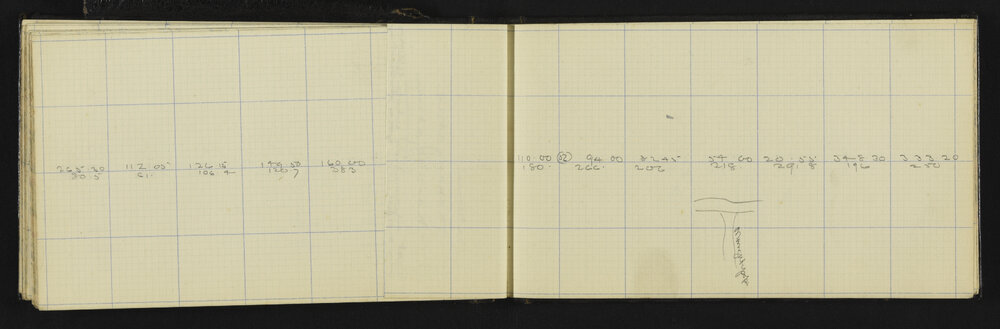 265.30 112.05 126.15 149.50 160.00
305 61 106.4 120.7 383
110.00 (52) 94.00 82.45 54.00 20.55 348.30 333.20
180 266 202 218 291.8 196 250